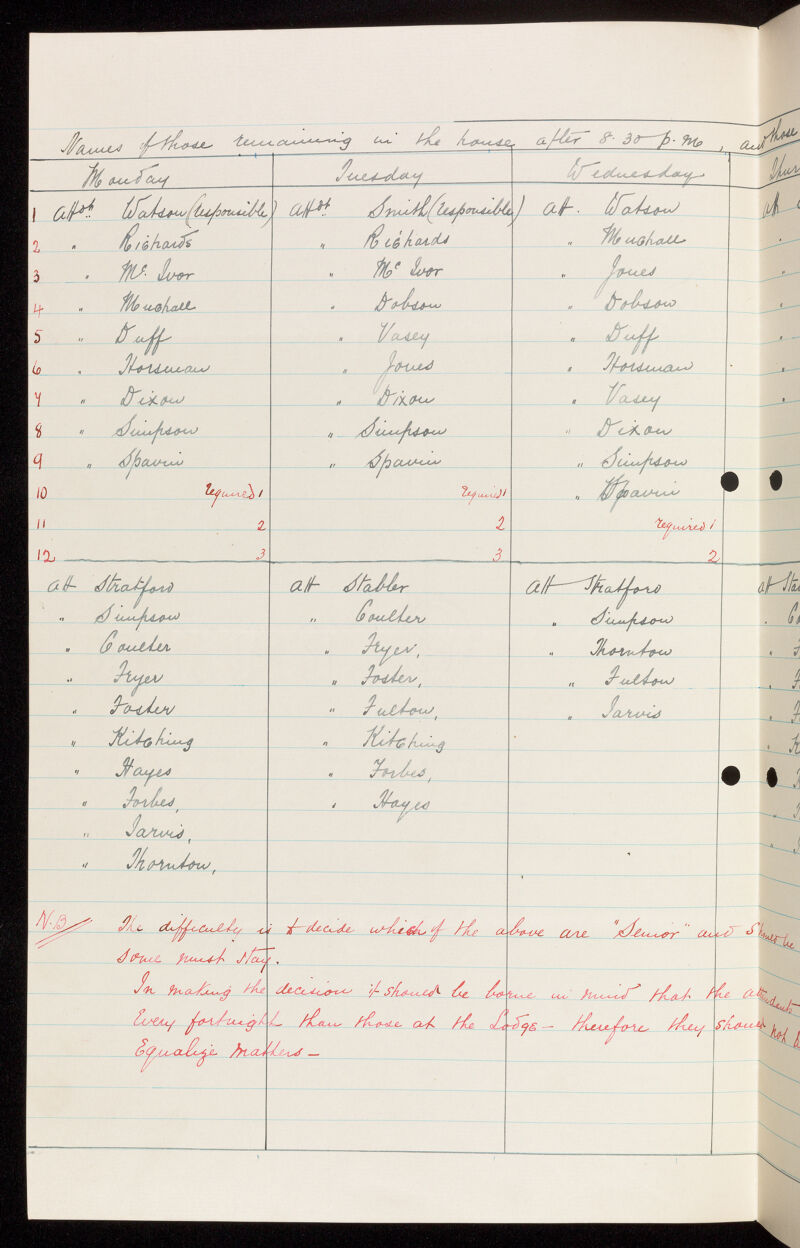 Names of those remaining in the house after 8.30 p.m, and those
Monday Tuesday Wednesday Thur
1 Attdt Watson (responsible) Attdt Smith (responsible) Att. Watson Att
2 " Richards " Richards " Mughall "
3 " Mc. Ivor " Mc Ivor " Jones "
4 " Mughall " Dobson " Dobson "
5 " Duff " Vasey " Duff "
6 " Horsman " Jones " Horsman "
7 " Dixon " Dixon " Vasey "
8 " Simpson " Simpson " Dixon
9 " Spavin " Spavin " Simpson
10 required 1 required 1 " Spavin
11 2 2 required 1
12 3 3 2
Att Stratford Att Stabler Att Stratford Att Sta
" Simpson " Coulter " Simpson " Co
" Coulter " Fryer, " Thornton " F
" Fryer " Foster, " Fulton " F
" Foster " Fulton, " Jarvis " F
" Kitching " Kitching " K
" Hayes " Forbes, "
" Forbes, " Hayes "
" Jarvis, "
" Thornton,
N.B. The difficulty is to decide which of the above are "Senior" and should be
some must stay.
In making the decision it should be borne in mind that the attendants
Every fortnight than those at the Lodge – therefore they should not b
Equalize matters –